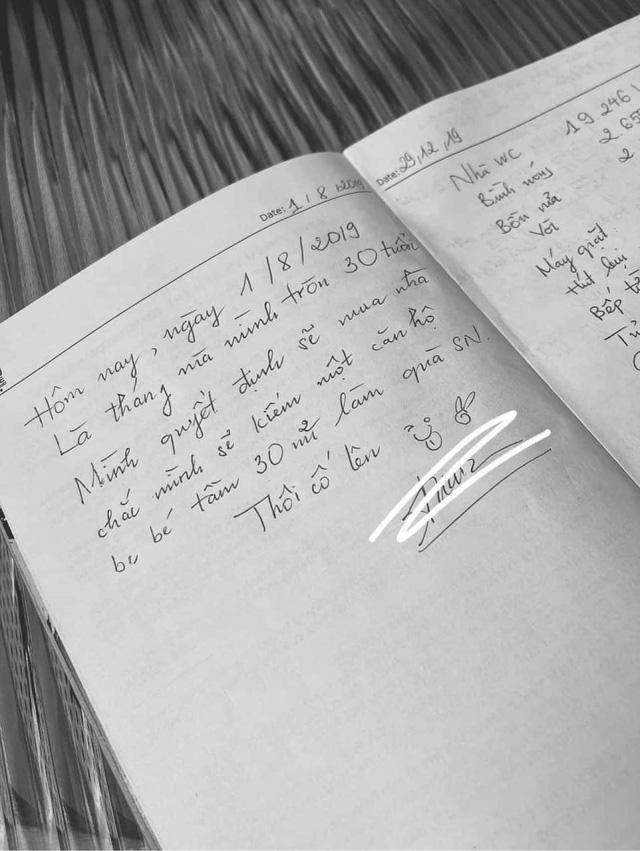 Date: 1 / 8 / 2019
Hôm nay, ngày 1/8/2019
Là tháng mà mình tròn 30 tuổi
Mình quyết định sẽ mua nhà
chắc mình sẽ kiếm một căn hộ
be bé tầm 30 m² làm quà SN.
Thôi cố lên
Date: 29, 12, 19
Nhà wc 19 246
Bình nóng 2 65
Bồn rửa 2
Vòi
Máy giặt
Hút
Bếp